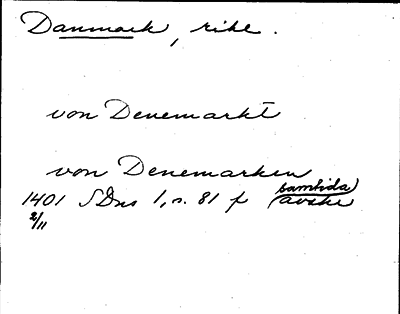 Danmark, rike.
von Denemarkt
von Denemarken
samtida
1401 SDns 1, s. 81 f (avskr
2/11